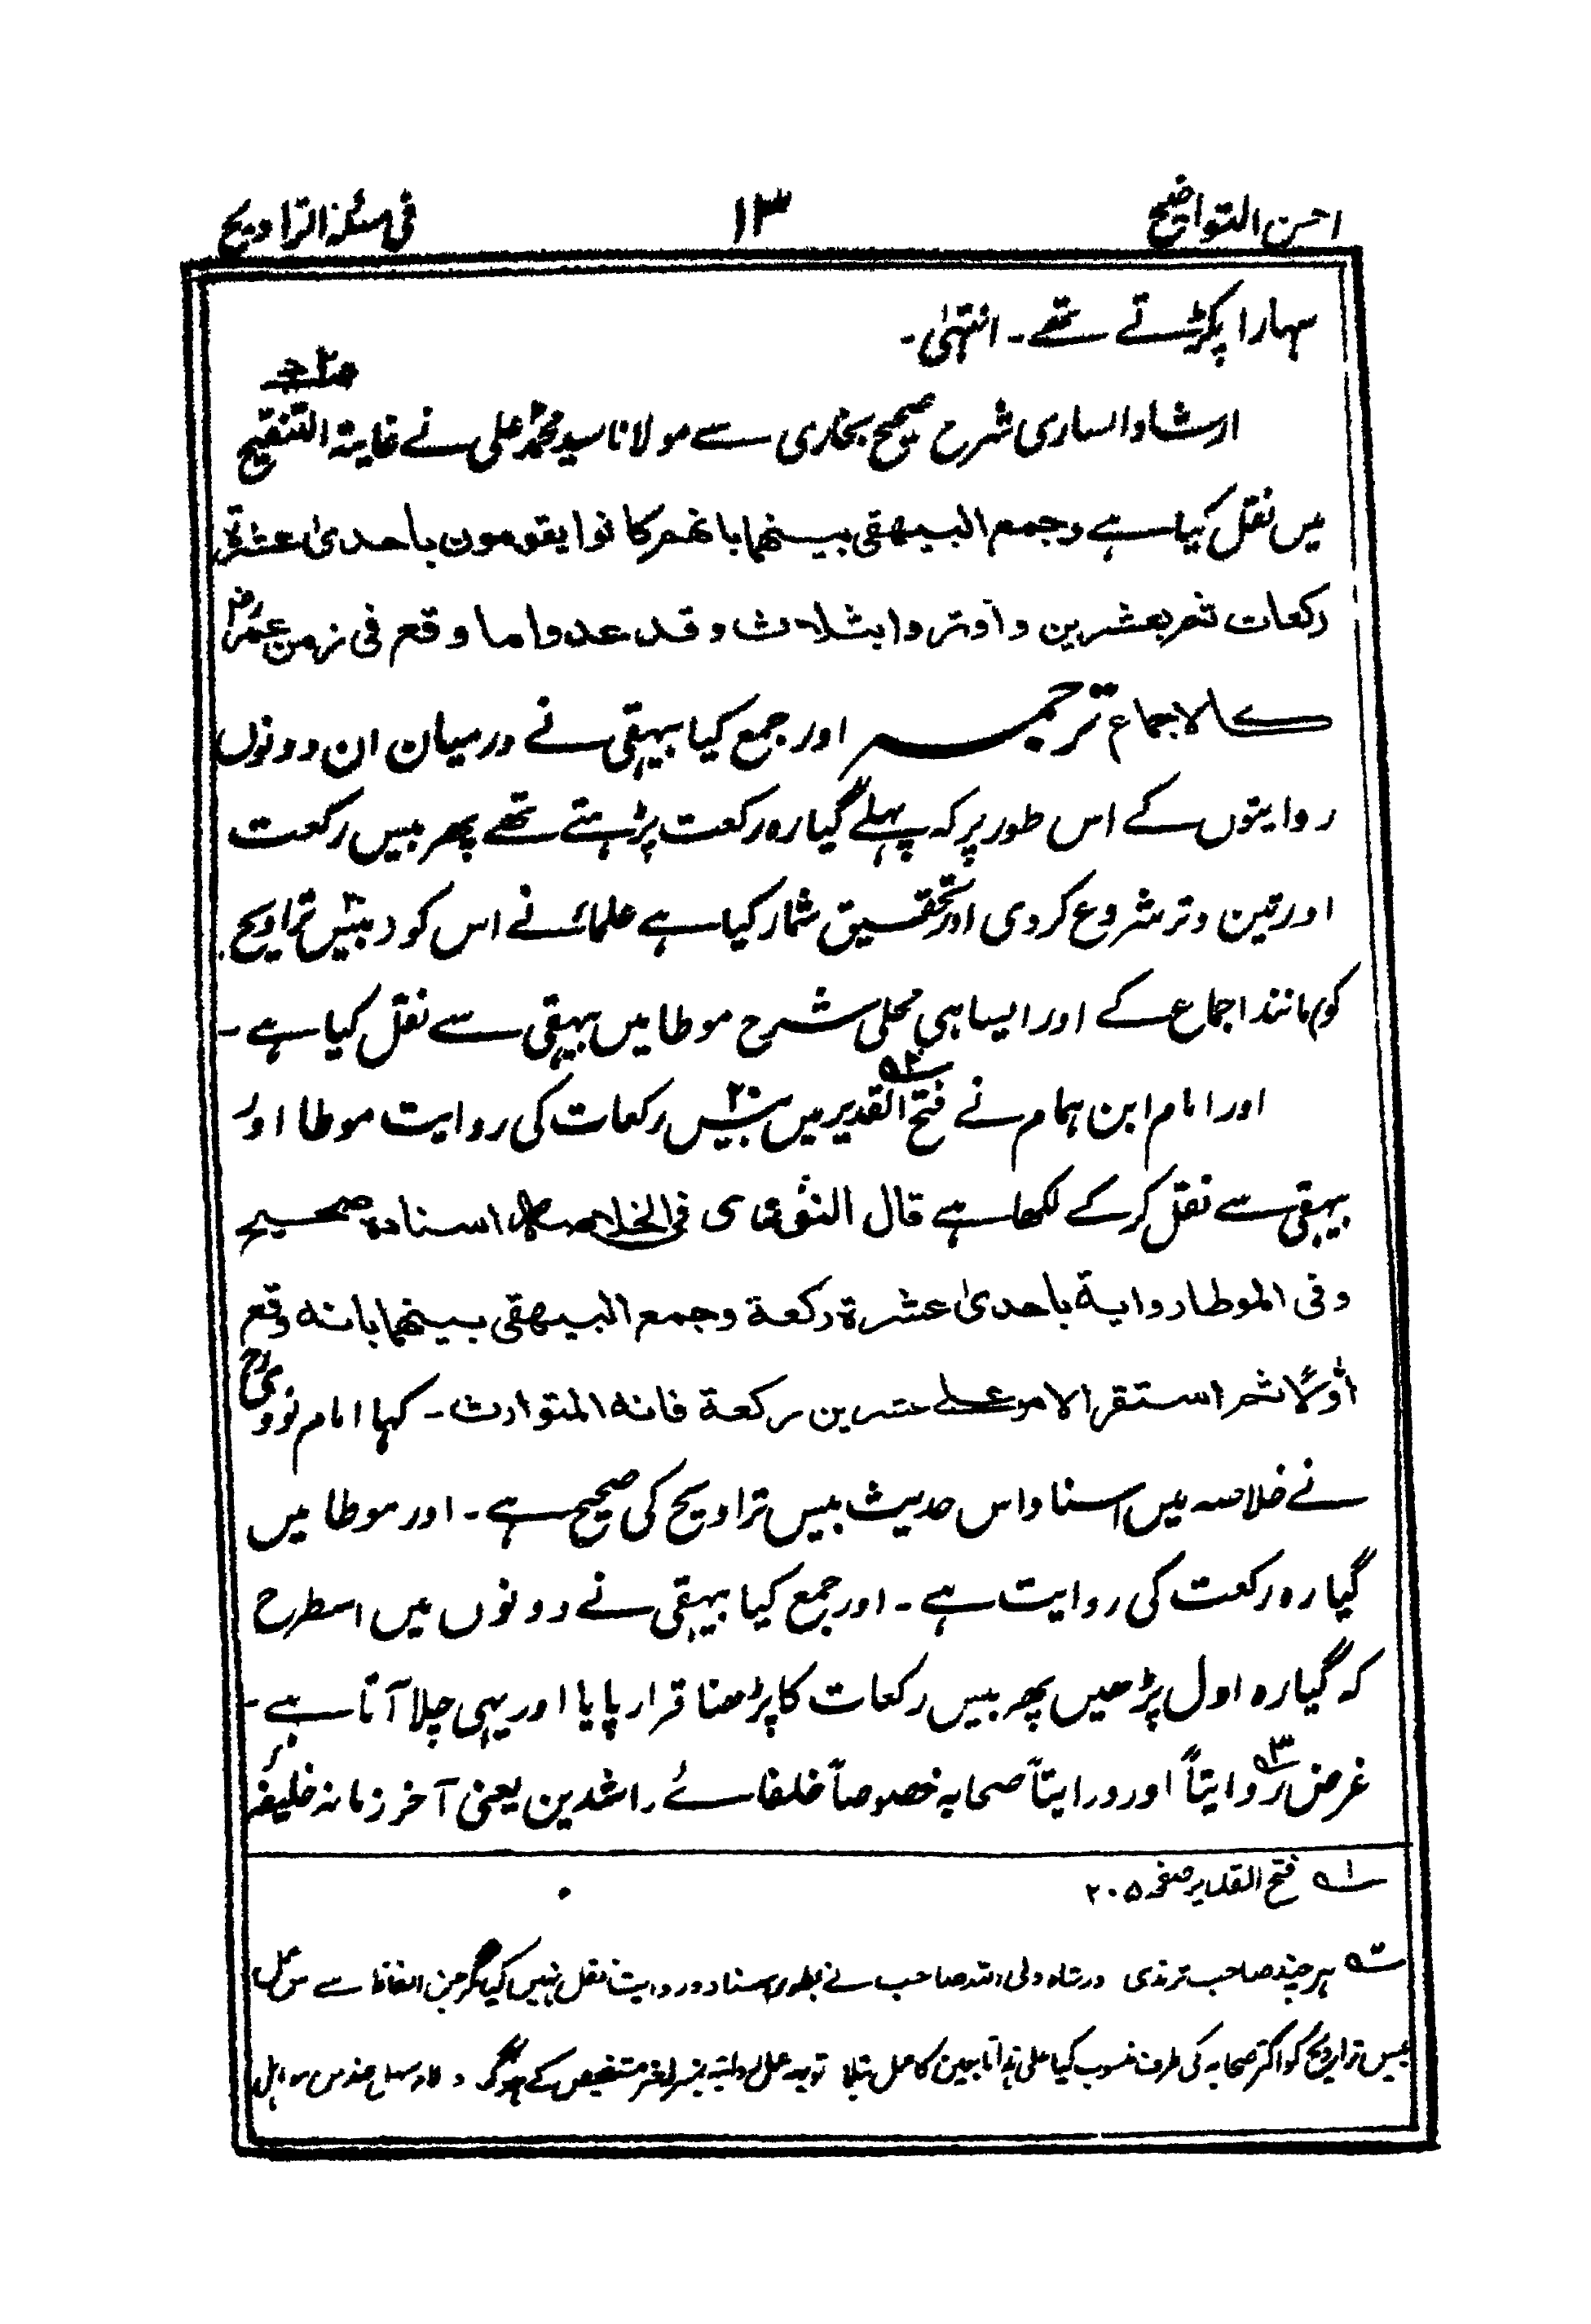 احسن التواضیح ۱۳ فی مسئلۃ التراویح
سہارا پکڑتے تھے ۔ انتہیٰ ۔
ارشاد الساری شرح صحیح بخاری سے مولانا سید محمد علی نے غایۃ التنقیح
میں نقل کیا ہے وجمع البیھقی بینھما بانھم کانوا یقومون باحدیٰ عشرۃ
رکعات ثم بعشرین واوتروا بثلاث وقد عدوا ما وقع فی زمن عمرؓ
کالاجماع ترجمہ اور جمع کیا بیہقی نے درمیان ان دونوں
روایتوں کے اس طور پر کہ پہلے گیارہ رکعت پڑہتے تھے پھر بیس رکعت
اور تین وتر شروع کردی اور تحقیق شمار کیا ہے علمائے نے اس کو د بیس ۲۰ تراویح
کو) مانند اجماع کے اور ایسا ہی محلی شرح موطا میں بیہقی سے نقل کیا ہے ۔
اور امام ابن ہمام نے فتح القدیر میں بیس ۲۰ رکعات کی روایت موطا اور
بیہقی سے نقل کرکے لکھا ہے قال النووی فی الخلاصۃ اسنادہ صحیح
وفی الموطا روایۃ باحدیٰ عشرۃ رکعۃ وجمع البیھقی بینھما بانہ وقع
اولًا ثم استقر الامر علی عشرین رکعۃ فانہ المتوارث ۔ کہا امام نووی رح
نے خلاصہ میں اسناد اس حدیث بیس تراویح کی صحیح ہے ۔ اور موطا میں
گیارہ رکعت کی روایت ہے ۔ اور جمع کیا بیہقی نے دونوں میں اسطرح
کہ گیارہ اول پڑھیں پھر بیس رکعات کا پڑھنا قرار پایا اور یہی چلا آتا ہے ۔
غرض ۳ روایتاً اور درایتاً صحابہ خصوصاً خلفائے راشدین یعنی آخر زمانہ خلیفہ
۱ فتح القدیر صفحہ ۲۰۵
ہر چند صاحب ترمذی ورشاہ ولی اللہ صاحب نے بطور اسناد و روایت نقل نہیں کیا مگر جن الفاظ سے
بیس تراویح کو اکثر صحابہ کی طرف منسوب کیا علی ہذا تابعین کا عمل بتلایا تو یہ عمل